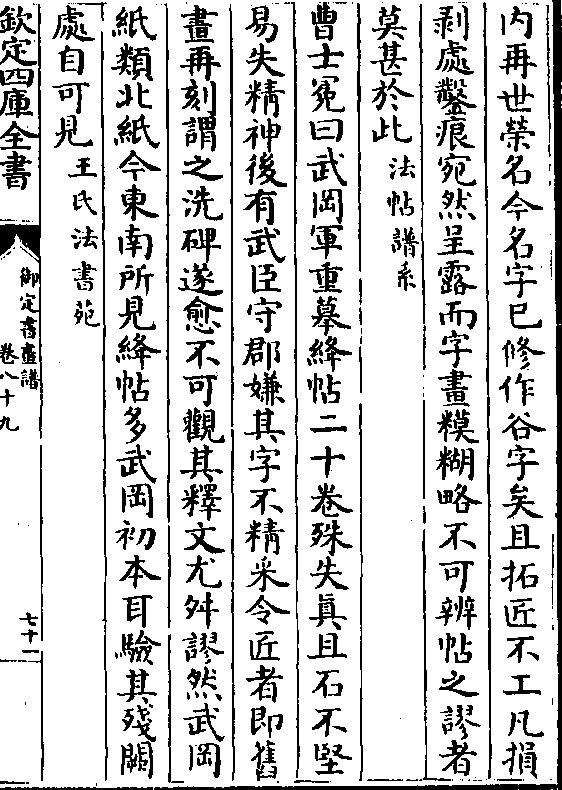 内再世榮名今名字已修作谷字矣且拓匠不工凡損
剥處鑿痕宛然呈露而字畫糢糊略不可辨帖之謬者
莫甚於此 法帖譜系
曹士冕曰武岡軍重摹絳帖二十卷殊失真且石不堅
易失精神後有武臣守郡嫌其字不精采令匠者即舊
畫再刻謂之洗碑遂愈不可觀其釋文尤舛謬然武岡
紙類北紙今東南所見絳帖多武岡初本耳驗其殘闕
處自可見 王氏法書苑
欽定四庫全書
御定書畫譜
卷八十九
七十一